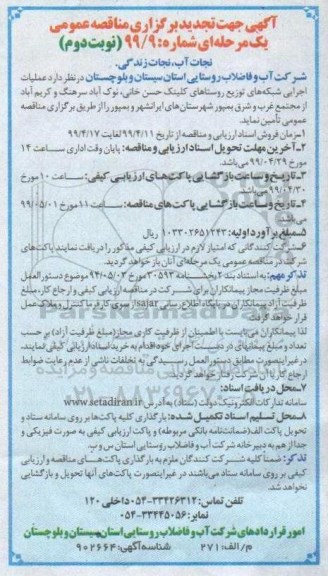 آگهی جهت تجدید برگزاری مناقصه عمومی
یک مرحله‌ای شماره: ۹۹/۹ (نوبت دوم)
نجات آب، نجات زندگی.
شرکت آب و فاضلاب روستایی استان سیستان و بلوچستان در نظر دارد عملیات
اجرایی شبکه‌های توزیع روستاهای کلینک حسن خانی، نوک آباد سرهنگ و کریم آباد
از مجتمع غرب و شرق بمپور شهرستان‌های ایرانشهر و بمپور را از طریق برگزاری مناقصه
عمومی تأمین نماید.
۱-زمان فروش اسناد ارزیابی و مناقصه از تاریخ ۹۹/۴/۱۱ لغایت ۹۹/۴/۱۷
۲-آخرین مهلت تحویل اسناد ارزیابی و مناقصه: پایان وقت اداری ساعت ۱۴
مورخ ۹۹/۰۴/۲۹ می‌باشد.
۳-تاریخ و ساعت بازگشایی پاکت‌های ارزیابی کیفی: ساعت ۱۰ مورخ
۹۹/۰۴/۳۰ می‌باشد.
۴-تاریخ و ساعت بازگشایی پاکت‌های مناقصه: ساعت ۱۱ مورخ ۹۹/۰۵/۰۱
۵-مبلغ برآورد اولیه: ۱۰۳۳۰۲۶۵۱۲۴۳ ریال
۶-شرکت کنندگانی که امتیاز لازم در ارزیابی کیفی مذکور را دریافت نمایند پاکت‌های
شرکت در مناقصه عمومی یک مرحله‌ای آنان باز خواهد گردید.
تذکر مهم: به استناد بند ۲ بخشنامه ۳۰۵۹۳ مورخ ۹۴/۰۵/۰۳ موضوع دستورالعمل
ظرفیت مجاز پیمانکاران برای شرکت در مناقصه ارزیابی کیفی و ارجاع کار، مبلغ
ظرفیت آزاد پیمانکاران در پایگاه اطلاع رسانی sajar از سوی کارفرما کنترل و ملاک عمل
قرار خواهد گرفت.
لذا پیمانکاران می‌بایست با اطمینان از ظرفیت کاری مجاز (مبلغ ظرفیت آزاد) بر حسب
تعداد و مبلغ پیمانهای در دست اجرای خود اقدام به خرید اسناد ارزیابی کیفی نمایند،
در غیر اینصورت مطابق دستورالعمل رسیدگی به تخلفات ناشی از عدم رعایت ضوابط
ارجاع کار با آن شرکت رفتار خواهد گردید.
۷-محل دریافت اسناد:
سامانه تدارکات الکترونیک دولت (ستاد) به آدرس www.setadiran.ir
۸-محل تسلیم اسناد تکمیل شده: بارگذاری کلیه پاکت‌ها بر روی سامانه ستاد و
تحویل پاکت الف (ضمانتنامه بانکی مربوطه) و پاکت ارزیابی کیفی به صورت فیزیکی و
جدا از هم به دبیرخانه شرکت آب و فاضلاب روستایی استان س و ب.
تذکر: ضمناً کلیه شرکت کنندگان ملزم به بارگذاری پاکت‌های مناقصه و ارزیابی
کیفی بر روی سامانه ستاد می‌باشند در غیر اینصورت پاکت‌های آنها تحویل و بازگشایی
نخواهد شد.
تلفن تماس: ۳۳۴۲۶۳۱۲-۰۵۴ داخلی ۱۲۰
نمابر: ۳۳۴۴۵۰۵۶-۰۵۴
امور قراردادهای شرکت آب و فاضلاب روستایی استان سیستان و بلوچستان
م/الف: ۲۷۱ شناسه آگهی: ۹۰۲۶۶۴